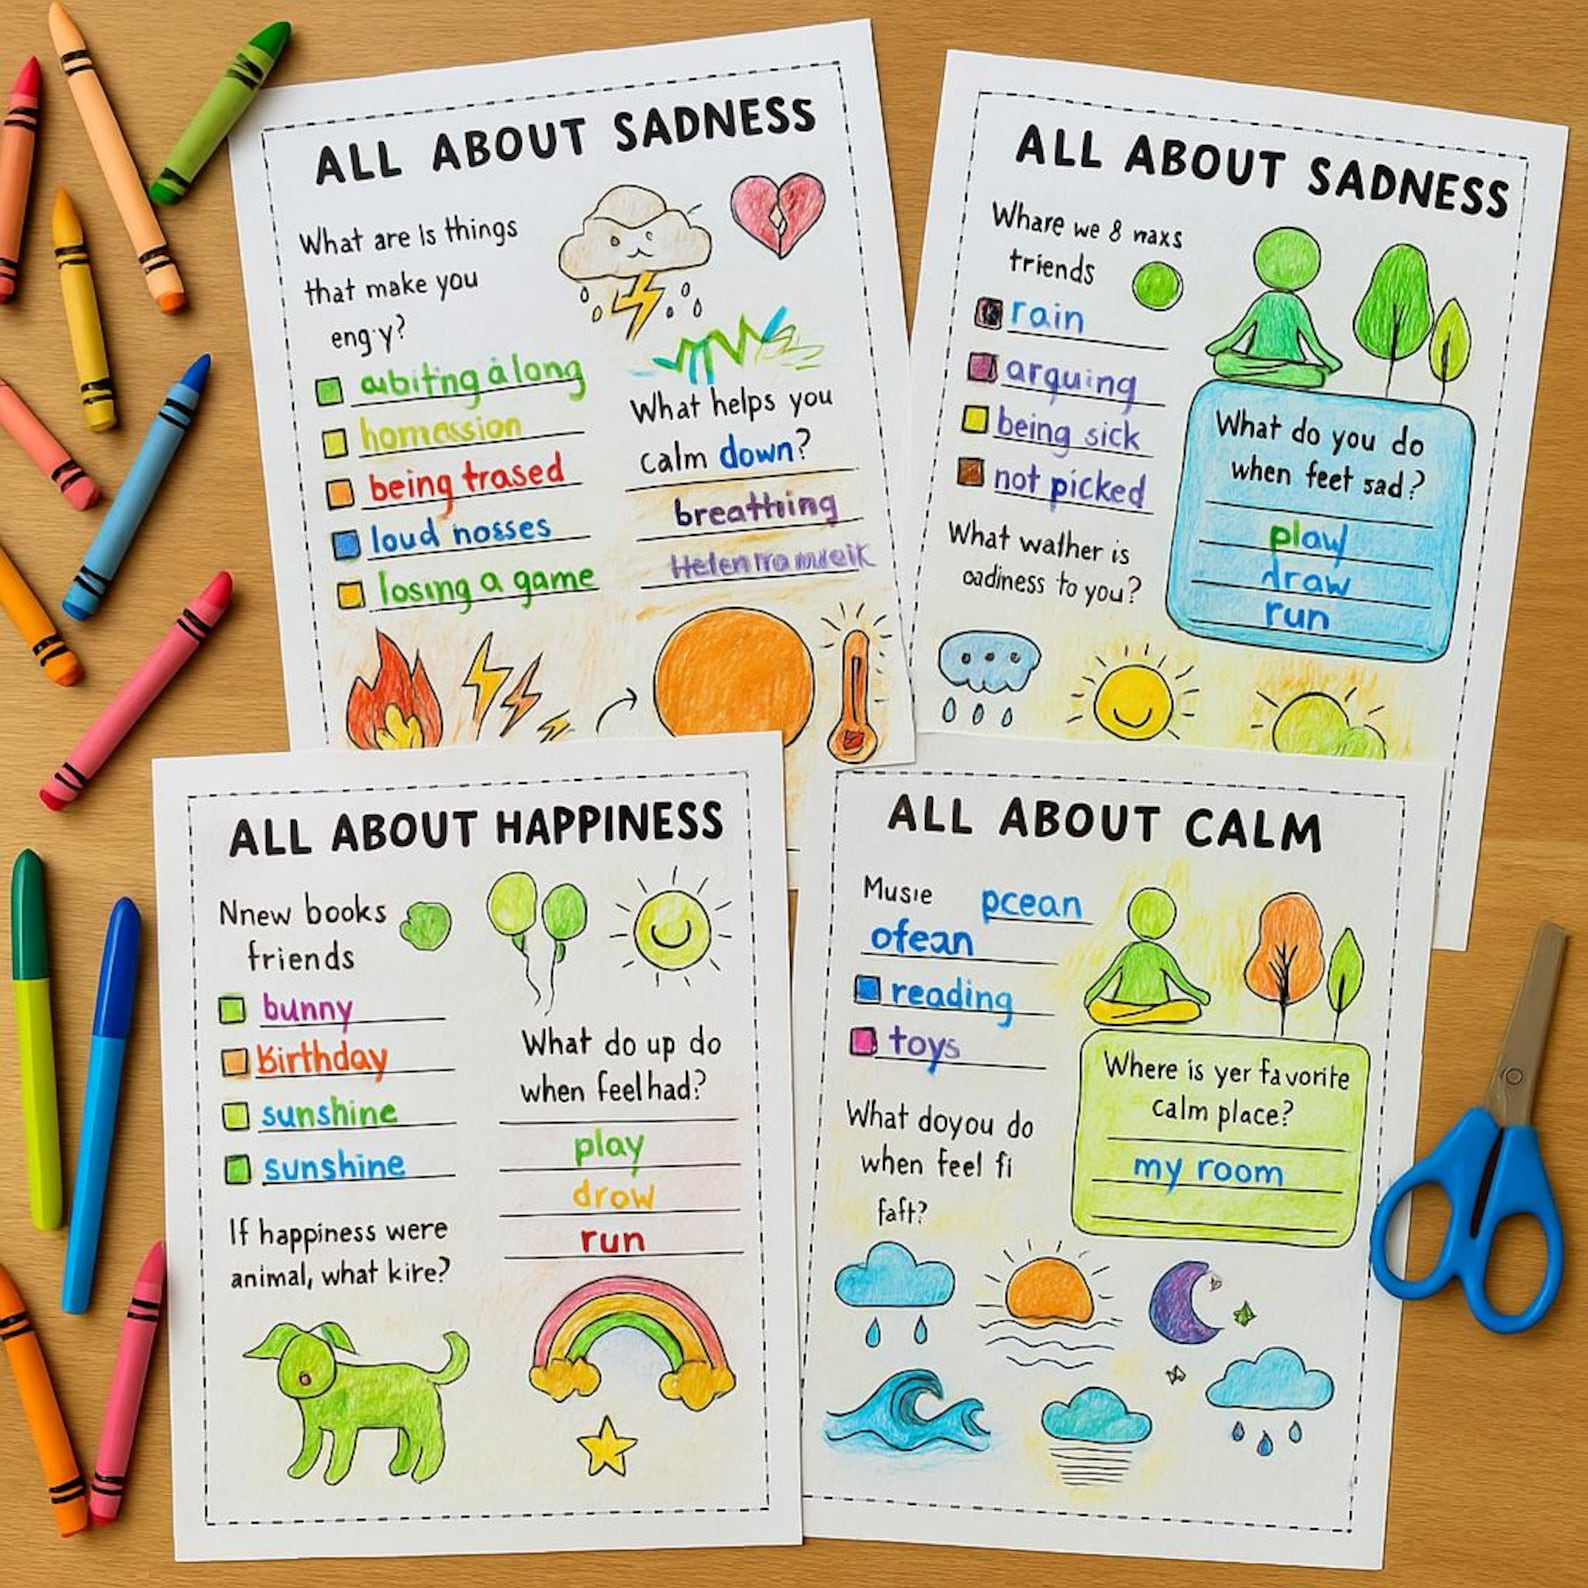 ALL ABOUT SADNESS
What are Is things
that make you
eng·y?
aubiting a long
homession
being trased
loud nosses
losing a game
What helps you
calm down?
breathing
ALL ABOUT SADNESS
Whare we 8 naxs
triends
rain
arguing
being sick
not picked
What walher is
oadiness to you?
What do you do
when feet sad?
play
draw
run
ALL ABOUT HAPPINESS
Nnew books
friends
bunny
Birthday
sunshine
sunshine
If happiness were
animal, what kire?
What do up do
when feel had?
play
drow
run
ALL ABOUT CALM
Musie pcean
ofean
reading
toys
What doyou do
when feel fi
faft?
Where is yer favorite
calm place?
my room